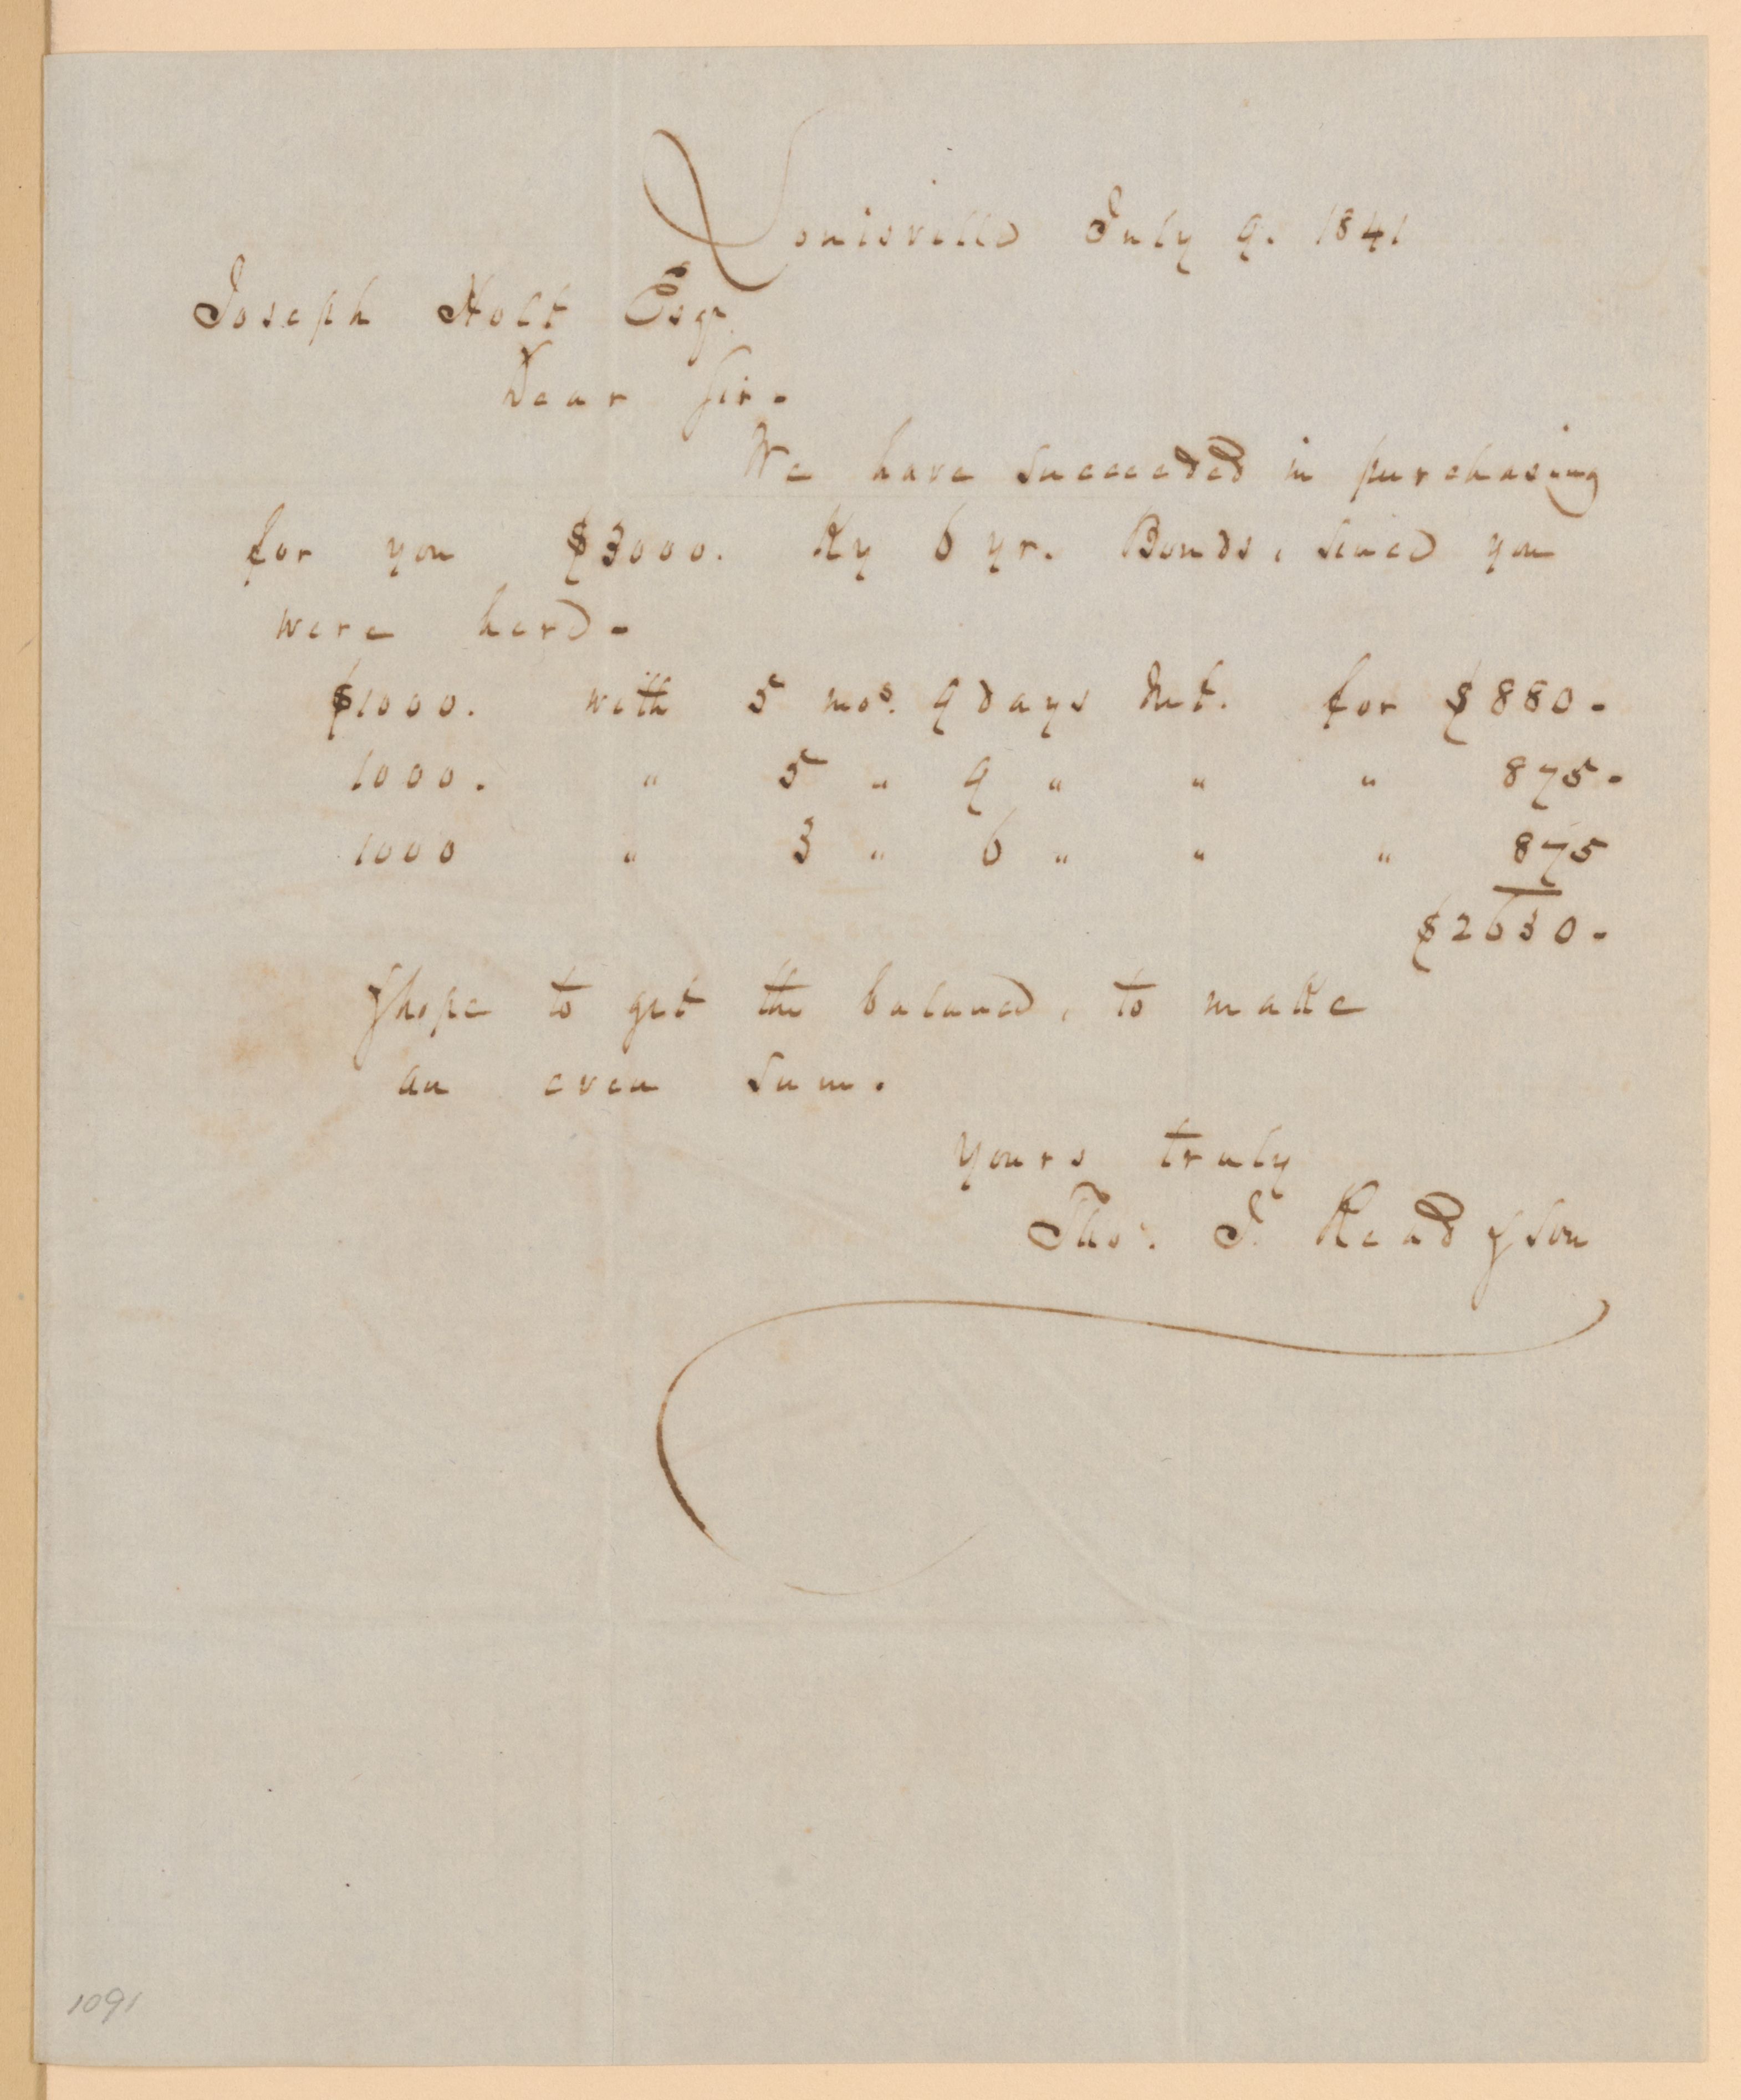 Louisville July 9. 1841
Joseph Holt Esqr.
Dear Sir.
We have succeeded in purchasing
for you $3000. Ky 6 yr. Bonds, since you
were here -
$1000. with 5 mos. 9 days Int. for $880-
1000. " 5 " 9 " " " 875-
1000 " 3 " 6 " " " 875
$2630-
& hope to get the balance, to make
an even sum.
Yours truly
Thos. J. Read & Son
1091